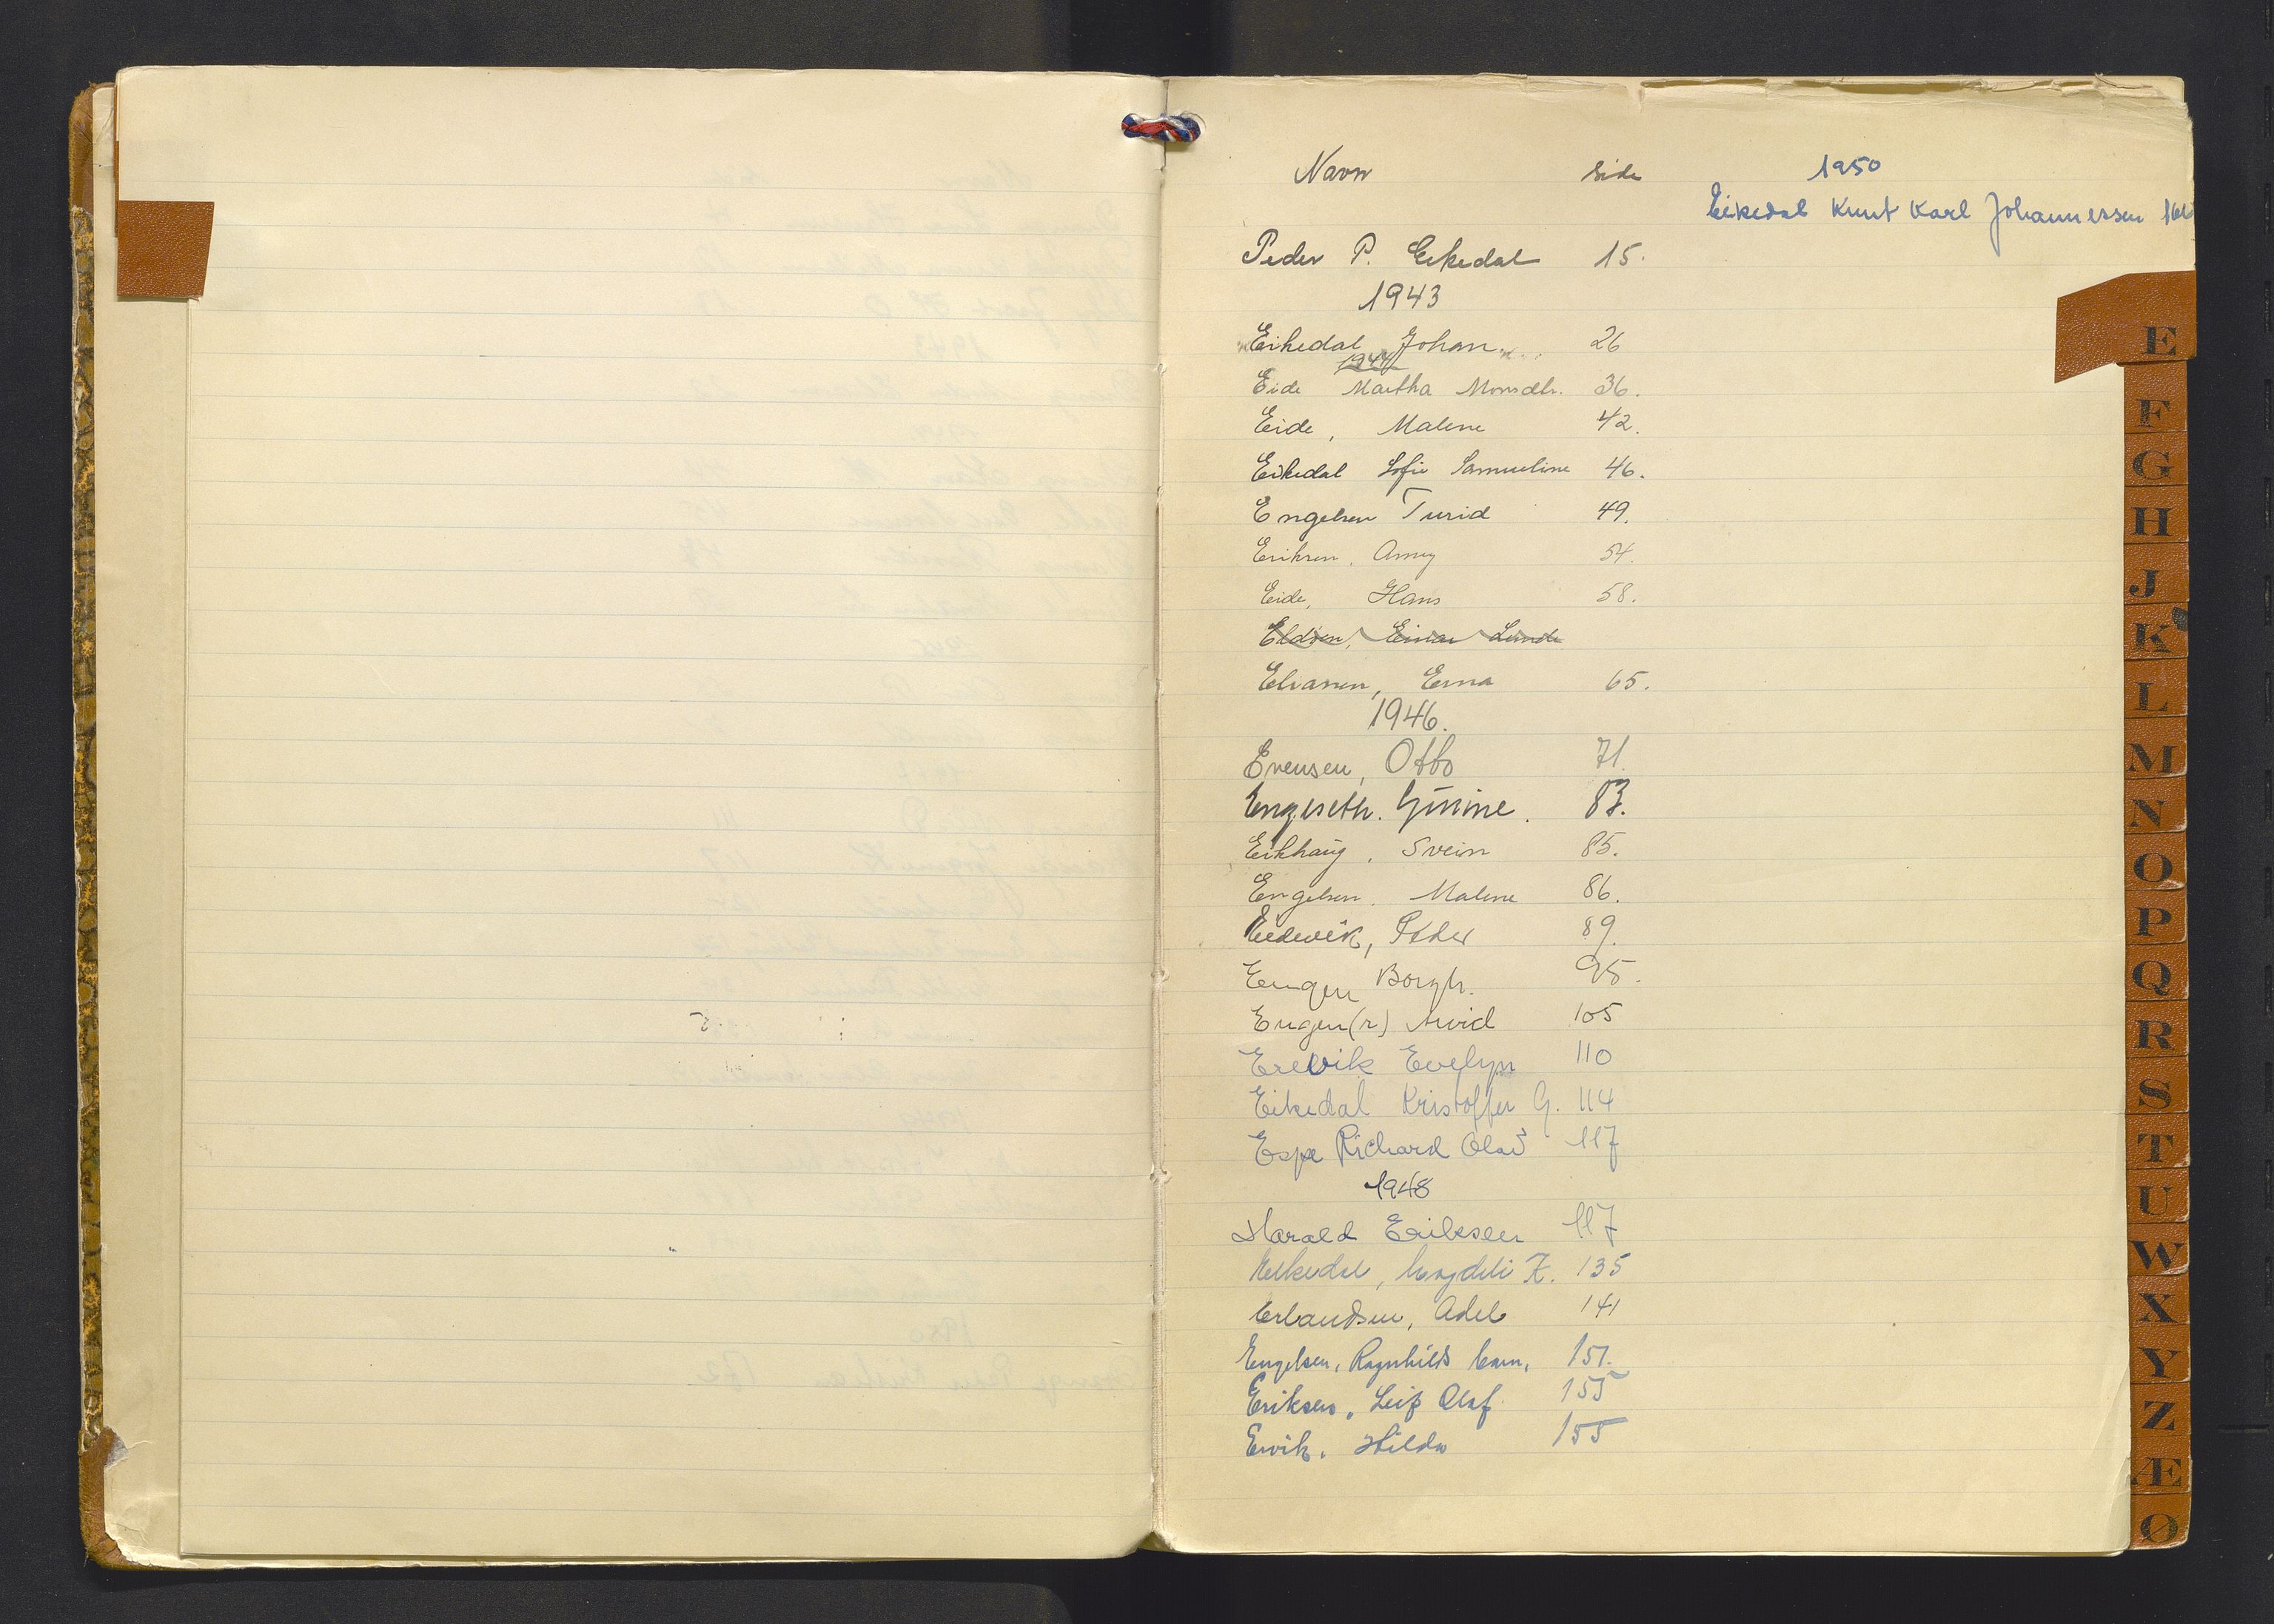 Navn side
Peder P. Eikedal 15.
1943
Eikedal Johan 26
1944
Eide Martha Monsdtr. 36.
Eide, Malene 42.
Eikedal Sofie Samueline 46.
Engelsen Turid 49.
Eriksen, Anny 54.
Eide, Hans 58.
Eldøen, Einar Lunde
Eliassen, Erna 65.
1946.
Evensen, Otto 71.
Engeseth. Gurine. 83.
Eikhaug, Svein 85.
Engelsen. Malene 86.
Eidevik, Peder 89.
Engen Borgh. 95.
Engen(r) Arvid 105
Erevik Evelyn 110
Eikedal Kristoffer G. 114
Espe Richard Olav 117
1948
Harald Eriksen 117
Eikedal, 135
Erlandsen, Adele 141
Engelsen, Ragnhilds barn, 151.
Eriksen, Leif Olaf 155
Ervik, Hilda 155
1950
Eikedal Knut Karl Johannessen
E
F
G
H
J
K
L
M
N
O
P
Q
R
S
T
U
W
X
Y
Z
Æ
Ø